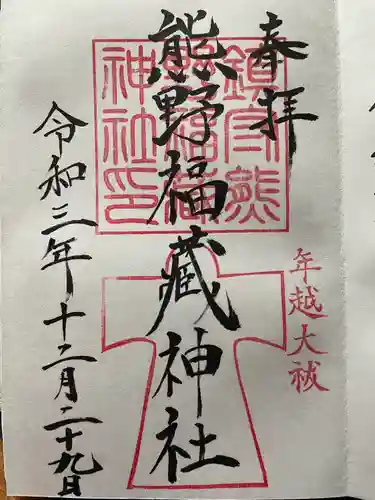 奉拝
鎮守熊
野福藏
神社印
熊野福藏神社
年越大祓
令和三年十二月二十九日